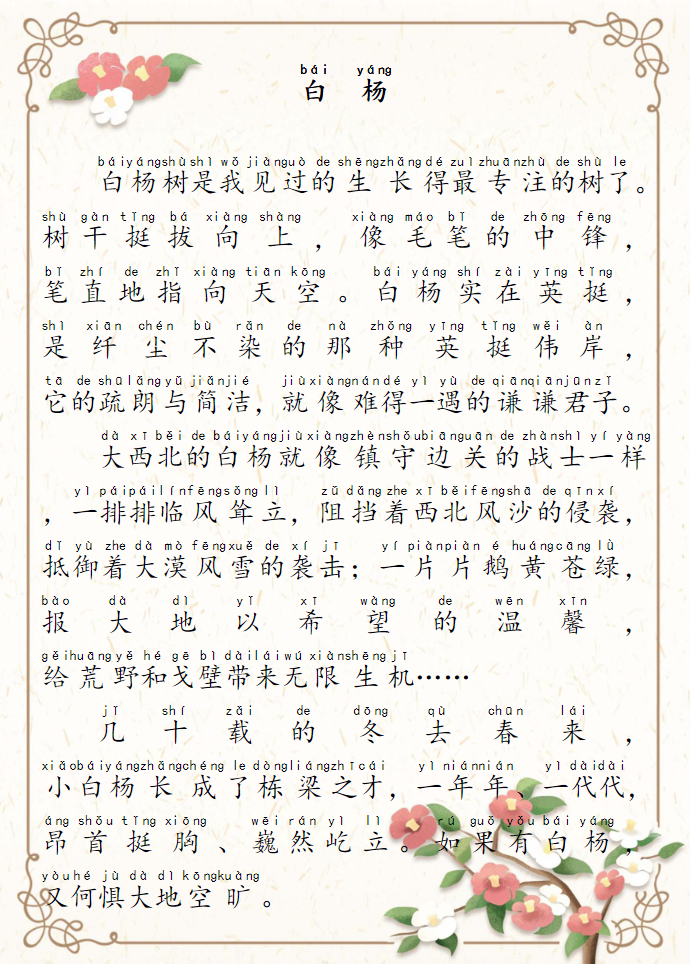 bái yáng
白 杨
báiyángshùshì wǒ jiànguò de shēngzhǎngdé zuìzhuānzhù de shù le
白杨树是我见过的生长得最专注的树了。
shù gàn tǐng bá xiàng shàng xiàng máo bǐ de zhōng fēng
树干挺拔向上，像毛笔的中锋，
bǐ zhí de zhǐ xiàng tiān kōng bái yáng shí zài yīng tǐng
笔直地指向天空。白杨实在英挺，
shì xiān chén bù rǎn de nà zhǒng yīng tǐng wěi àn
是纤尘不染的那种英挺伟岸，
tā de shūlǎngyǔ jiǎnjié jiùxiàngnándé yì yù de qiānqiānjūnzǐ
它的疏朗与简洁，就像难得一遇的谦谦君子。
dà xī běi de báiyángjiùxiàngzhènshǒubiānguān de zhànshì yí yàng
大西北的白杨就像镇守边关的战士一样
yì páipáilínfēngsǒnglì zǔ dǎng zhe xī běifēngshā de qīnxí
，一排排临风耸立，阻挡着西北风沙的侵袭，
dǐ yù zhe dà mò fēngxuě de xí jī yí piànpiàn é huángcānglǜ
抵御着大漠风雪的袭击；一片片鹅黄苍绿，
bào dà dì yǐ xī wàng de wēn xīn
报大地以希望的温馨，
gěihuāngyě hé gē bì dàiláiwú xiànshēngjī
给荒野和戈壁带来无限生机……
jǐ shí zǎi de dōng qù chūn lái
几十载的冬去春来，
xiǎobáiyángzhǎngchéng le dòngliángzhīcái yì niánnián yì dàidài
小白杨长成了栋梁之才，一年年、一代代，
áng shǒu tǐng xiōng wēi rán yì lì rú guǒ yǒu bái yáng
昂首挺胸、巍然屹立。如果有白杨，
yòuhé jù dà dì kōngkuàng
又何惧大地空旷。